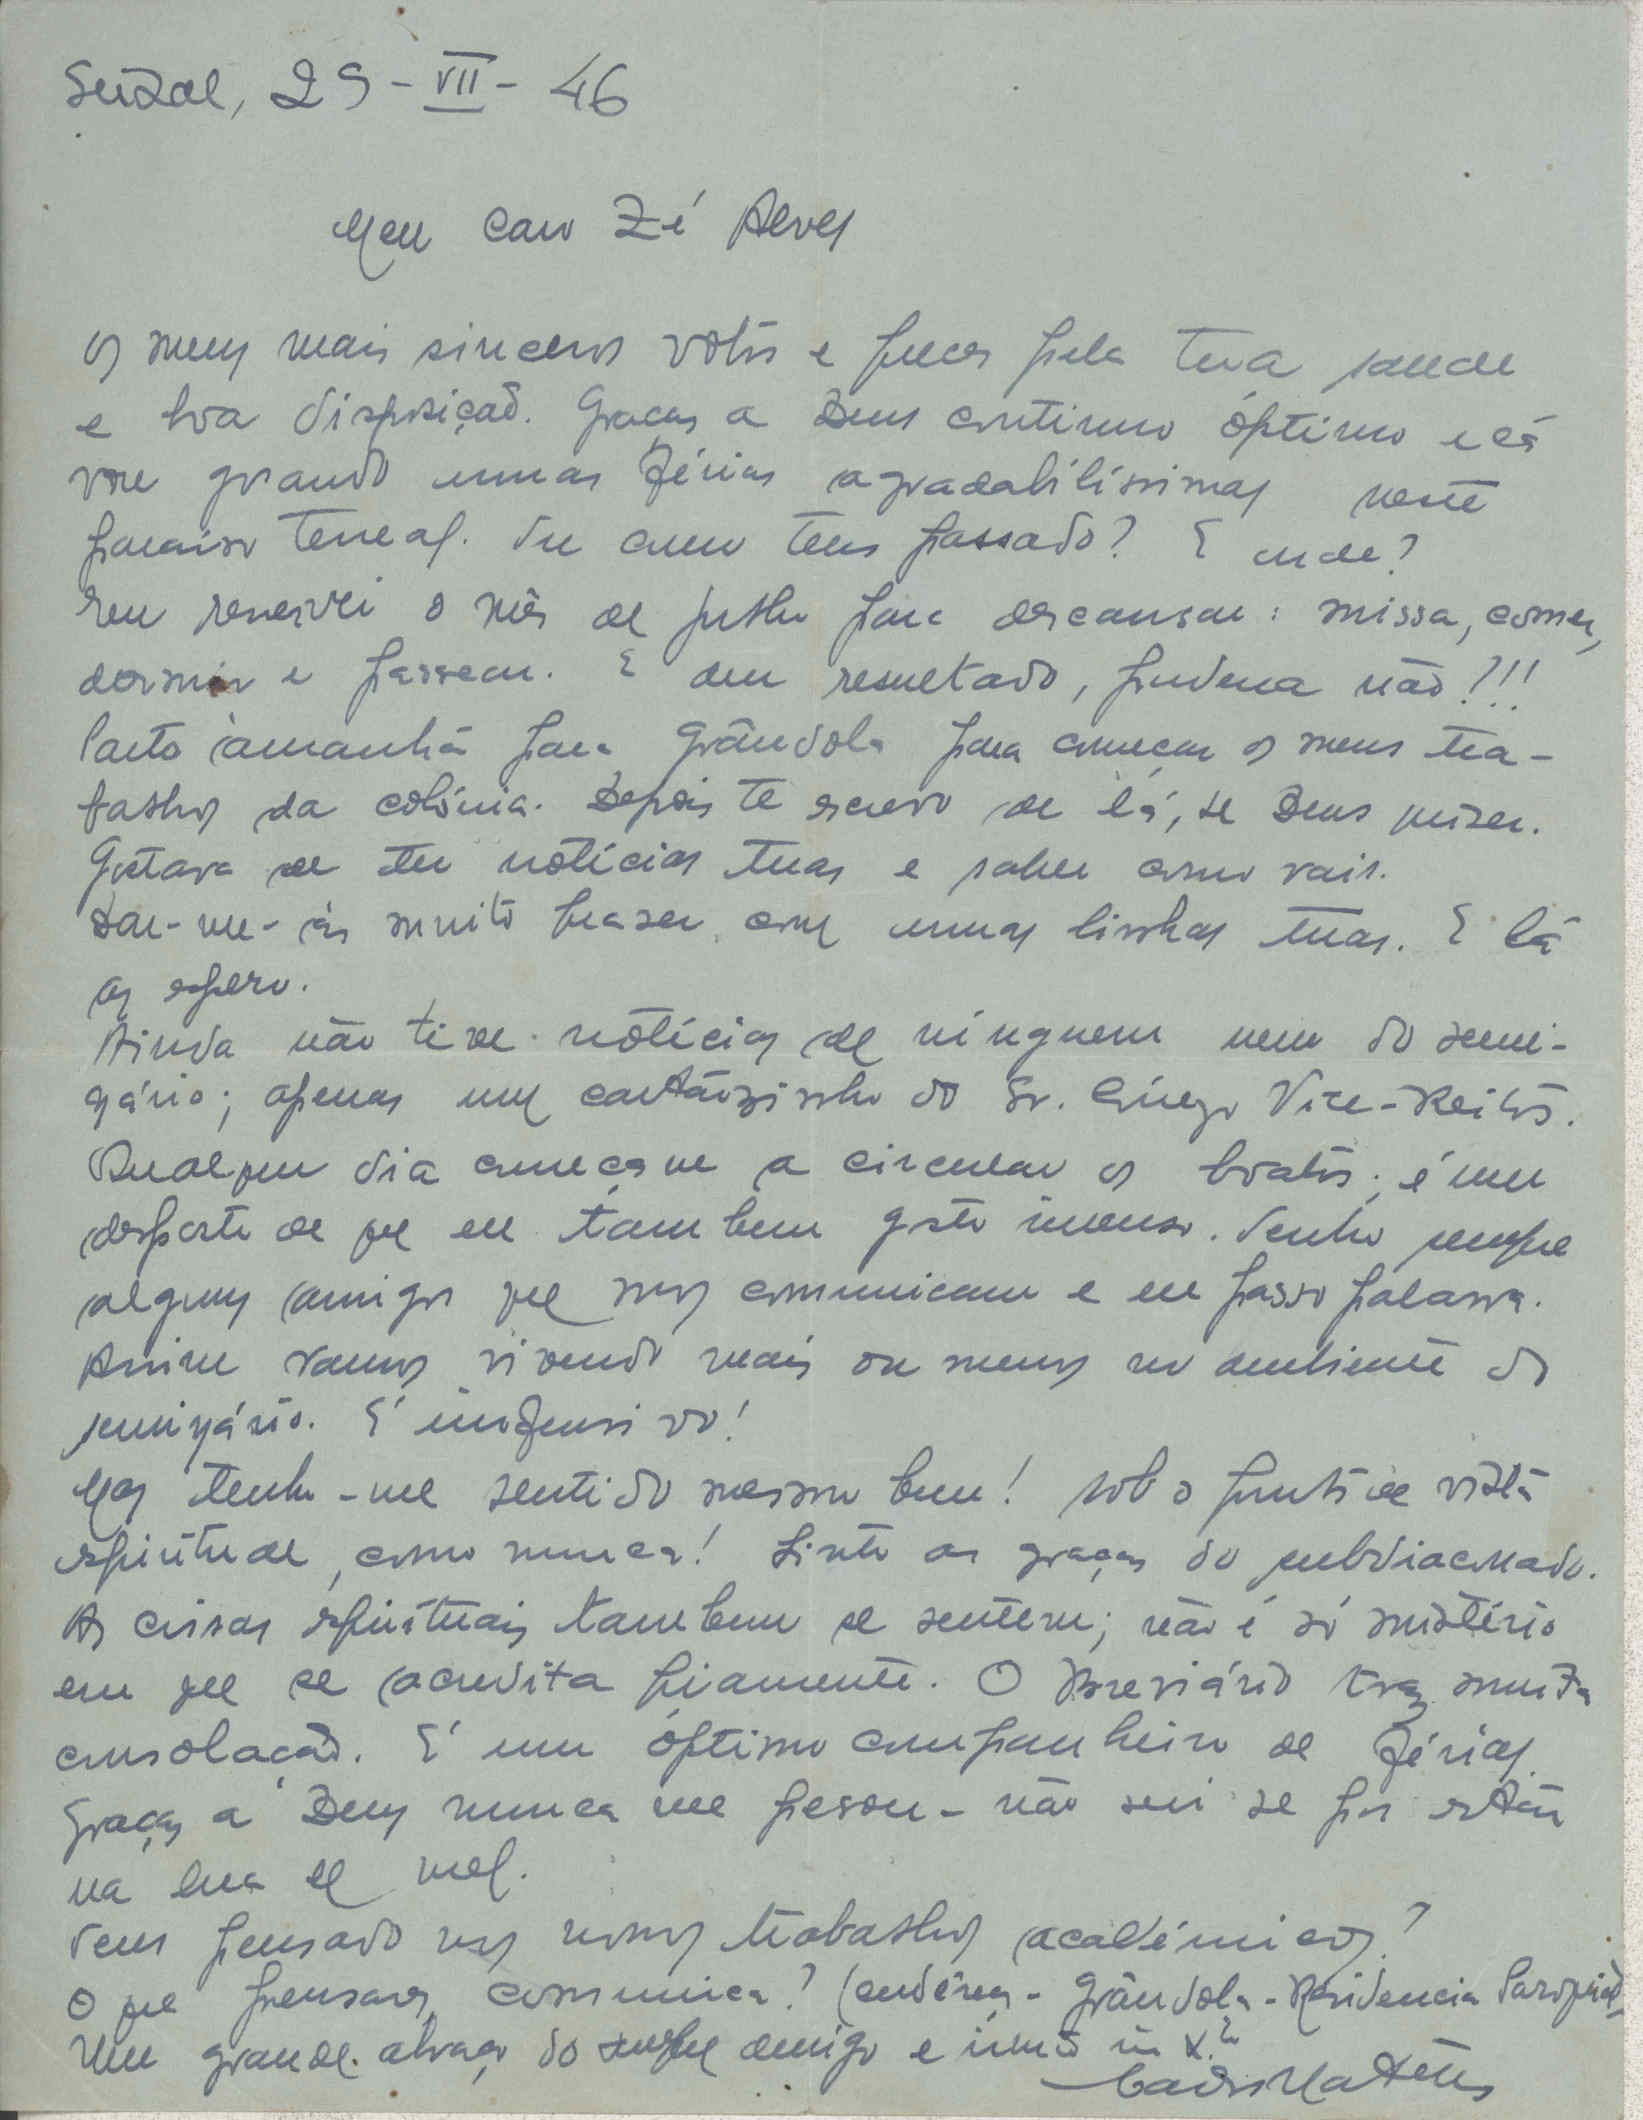 Seixal, 29-VII-46
Meu caro Zé Alves
Os meus mais sinceros votos e preces pela tua saude
e boa disposição. Graças a Deus continuo óptimo e cá
vou gosando umas férias agradabilíssimas neste
paraiso terreal. Tu como tens passado? E onde?
Eu reservei o mês de julho para descansar: missa, comer,
dormir e passear. E deu resultado, pudera não?!!!
Parto àmanhã para Grândola para começar os meus tra-
balhos da colónia. Depois te escrevo de lá, se Deus quiser.
Gostava de ter notícias tuas e saber como vais.
Dar-me-ás muito praser com umas linhas tuas. E lá
as espero.
Ainda não tive notícias de ninguem nem do semi-
nário; apenas um cartãozinho do Sr. Cónego Vice-Reitor.
Qualquer dia começam a circular os boatos; é um
desporto de que eu tambem gosto imenso. Tenho sempre
alguns amigos que mos comunicam e eu passo palavra.
Assim vamos vivendo mais ou menos no ambiente do
seminário. É inofensivo!
Mas tenho-me sentido mesmo bem! Sob o ponto de vista
espiritual, como nunca! Sinto as graças do subdiaconado.
As coisas espirituais tambem se sentem; não é só mistério
em que se acredita piamente. O Breviário traz muita
consolação. É um óptimo companheiro de férias.
Graças a Deus nunca me pesou - não sei se por estar
na lua de mel.
Tens pensado nos nossos trabalhos académicos?
O que pensares, comunica? (endereço - Grândola - Residencia Paroquial)
Um grande abraço do sempre amigo e irmão in X.º